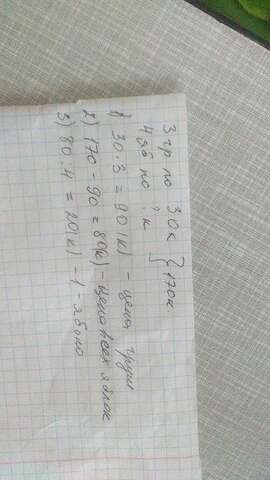 3 гр по 30к } 170к
4 яб по ? к
1) 30 · 3 = 90 (к) - цена груш
2) 170 - 90 = 80(к) - цена всех яблок
3) 80 : 4 = 20(к) - 1 - яблоко